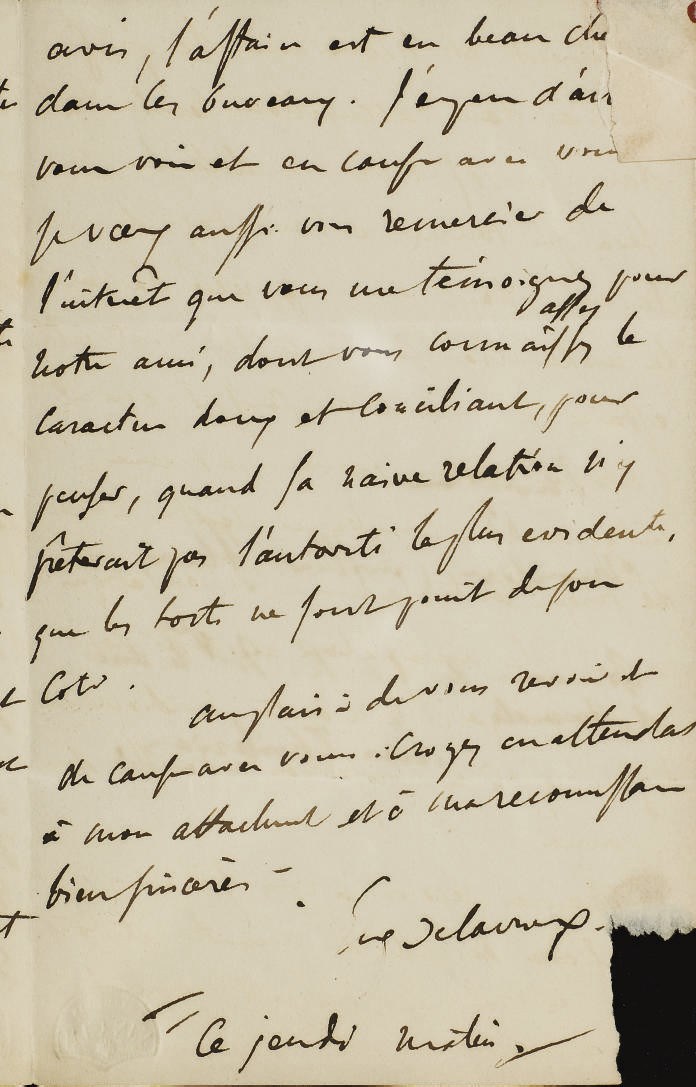 avis, l'affaire est en beau che
dans les bureaux. J'espere d'ai
vous voir et en causer avec vous
je veux aussi vous remercier de
l'intérêt que vous me témoignez pour
assez
notre ami, dont vous connaissez le
caractere doux et conciliant, pour
penser, quand sa naive relation n'y
prêterait pas l'autorité la plus evidente,
que les torts ne sont point de son
coté.
au plaisir de vous revoir et
de causer avec vous. Croyez en attendant
à mon attachement et à ma reconnaissance
bien sincères
Eug Delacroix.
Ce jeudi matin.